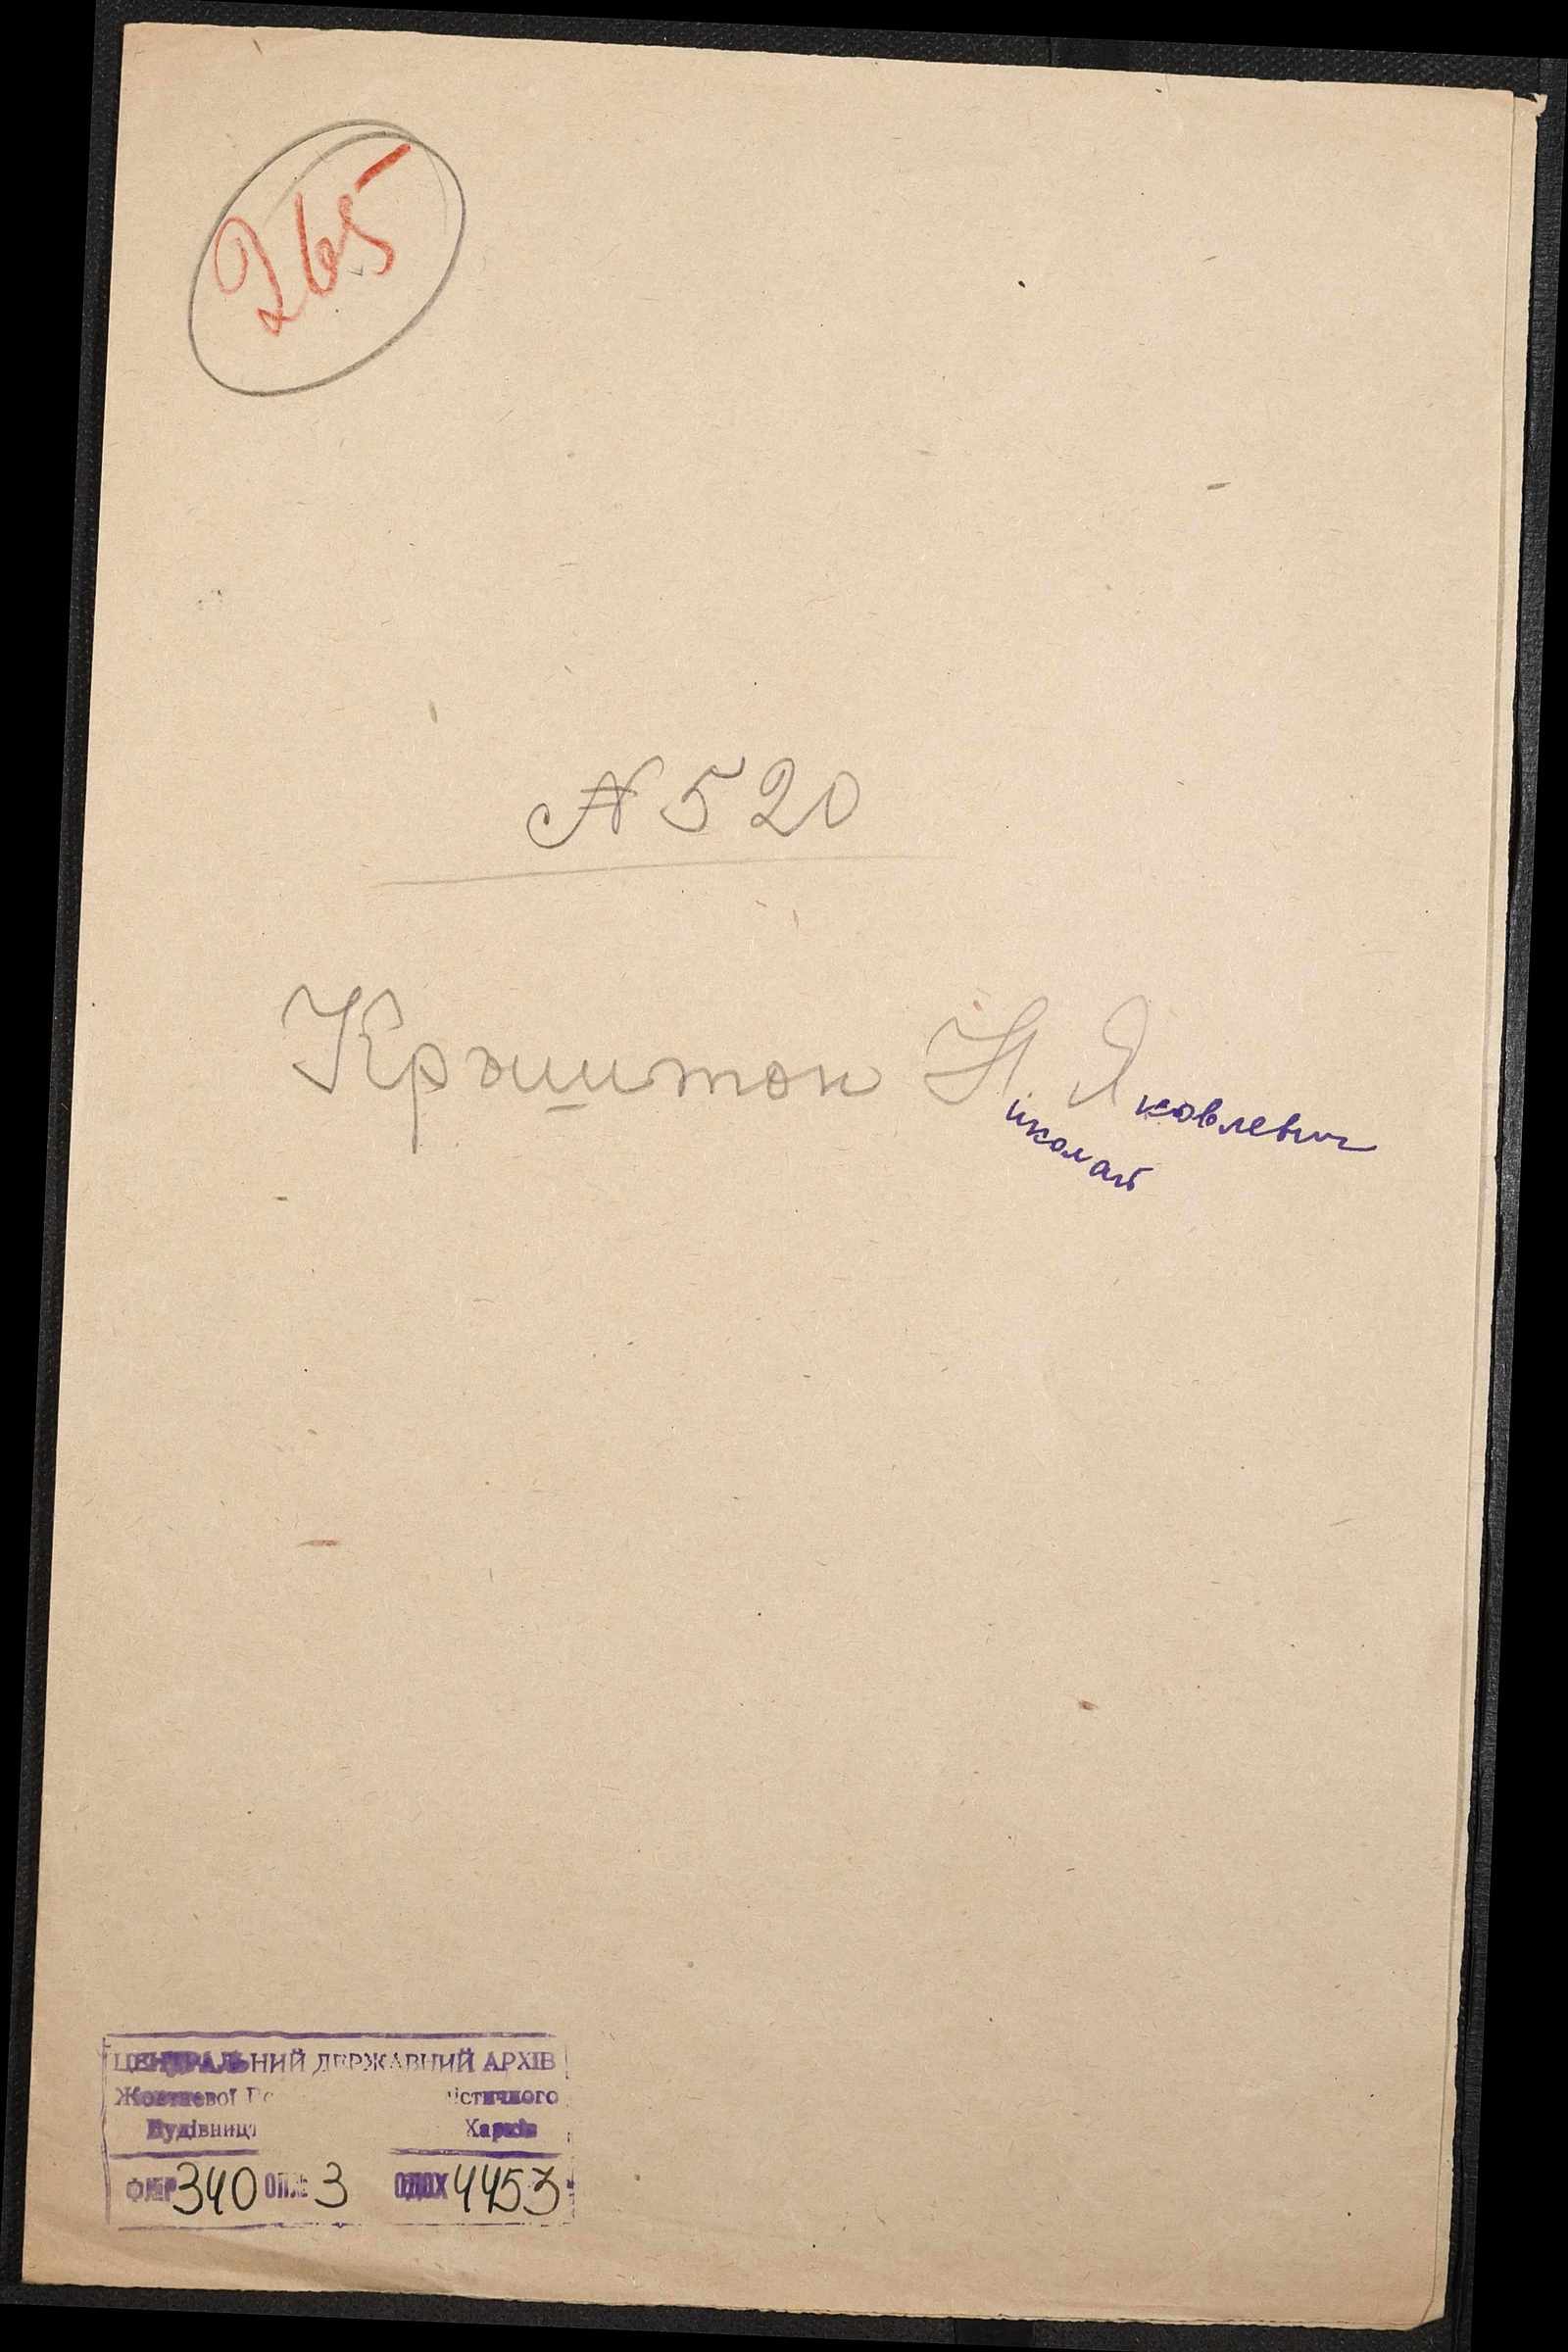 265
№ 520
Крыштоп Н. Яковлевич
иколай
ЦЕНТРАЛЬНИЙ ДЕРЖАВНИЙ АРХІВ
Жовтневої істичного
Будівницт Харків
Ф.№Р 340 ОП.№ 3 ОД.ЗХ 4453